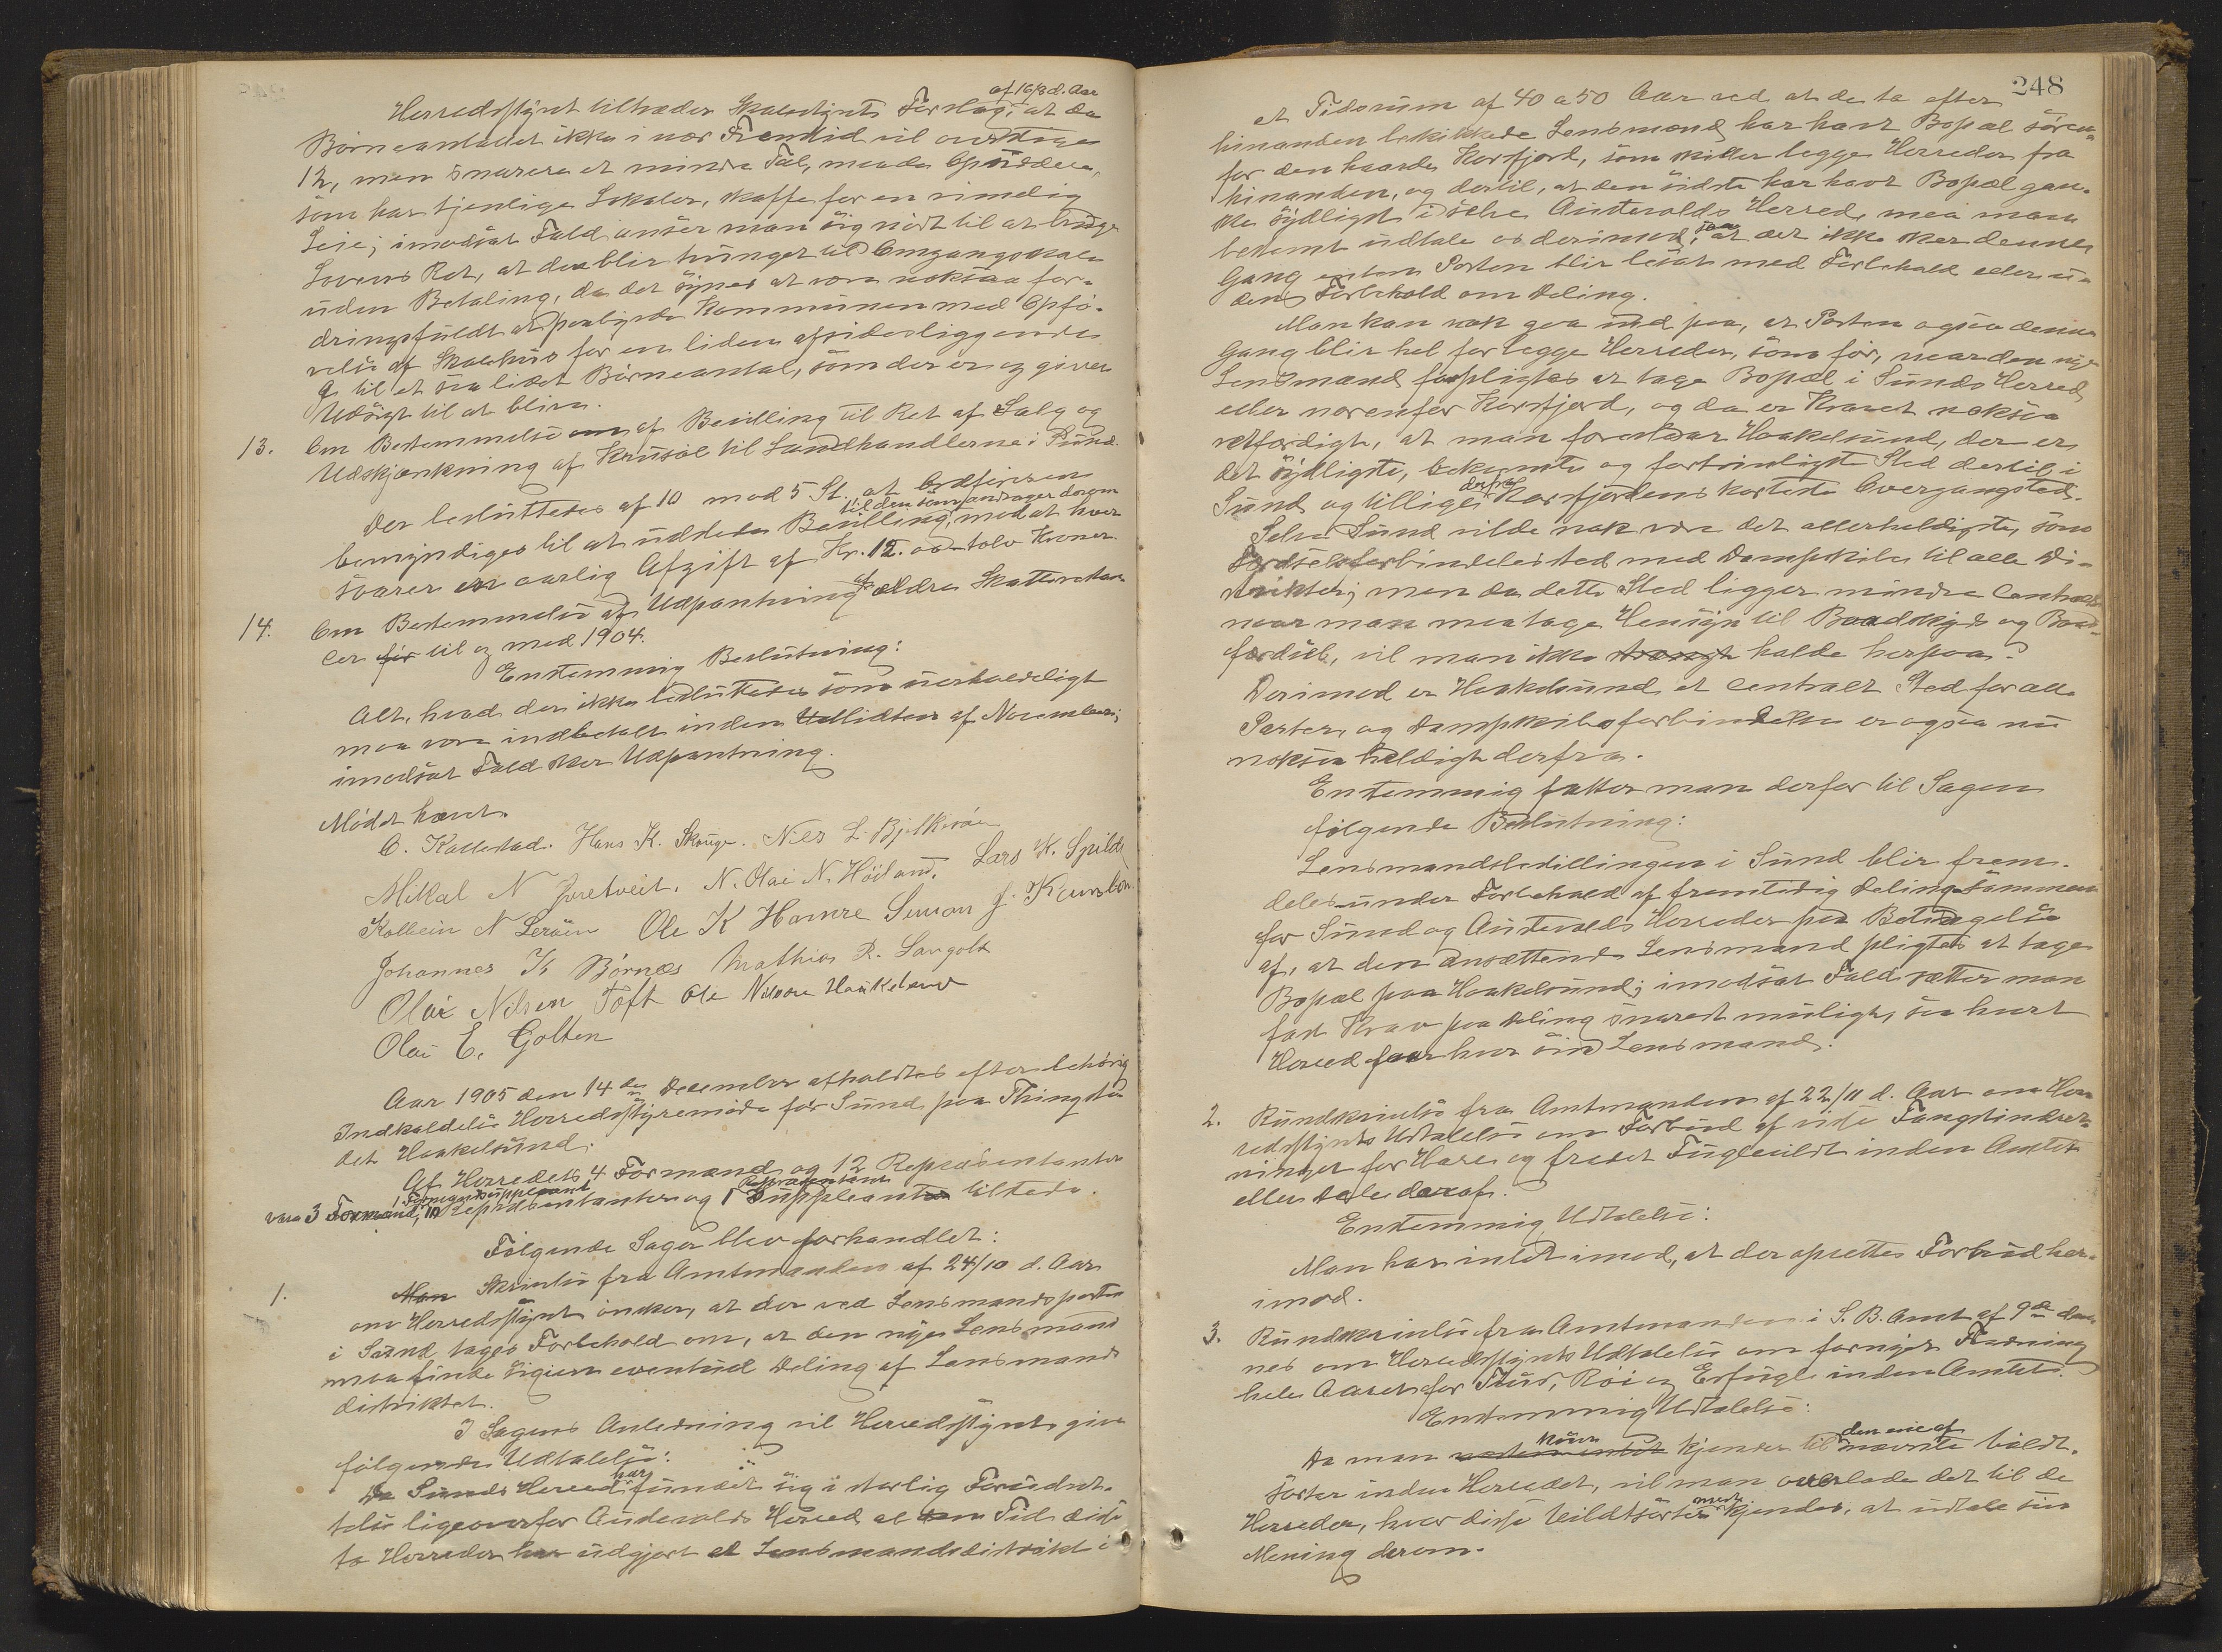 af 16/8 d. Aar
Herredsstyret tiltræder Skolestyrets Forslag, at da
Børneantallet ikke i nær Fremtid vil overstige
12, men snarere et mindre Tal, maa de Opsiddere,
som har tjenlige Lokaler, skaffe for en rimelig
Leie; imodsat Fald anser man sig nødt til at bruge
Lovens Ret, at de blir tvunget til Omgangsskole
uden Betaling, da det synes at være noksaa for-
dringsfuldt at paalignes Kommunen med Opfø-
relse af Skolehus for en liden afsidesliggende
til et saa lidet Børneantal, som der er og giver
Udsigt til at blive.
13. Om Bestemmelse af Bevilling til Ret af Salg og
Udskjænkning af Krusøl til Landhandlerne i Sund.
Der besluttedes af 10 mod 5 St. at Ordføreren
til den som andrager derom
bemyndiges til at uddele Bevilling, mod at hver
svarer en aarlig Afgift af Kr. 12.00 - tolv Kroner.
14. Om Bestemmelse af Udpantning af ældre Skatterestan-
cer før til og med 1904.
Enstemmig Beslutning:
Alt, hvad der ikke besluttedes som uerholdeligt
maa være indbetalt inden Udlidten af November;
imodsat Fald sker Udpantning.
Mødet hævet.
O. Kallestad. Hans K. Skouge. Niels L. Bjelkerøen
Mikkal N Tveitveit. N. Olai N. Høiland. Lars W. Spilde
Kolbein N Lerøen Ole K Hamre Simon J. Knudsen.
Johannes K Børnes Mathias R. Langolt
Olai Nilsen Toft Ole Nilsen Haakelsund
Olai E. Golten
Aar 1905 den 14de December afholdtes efter behørig
Indkaldelse Herredsstyremøde for Sund paa Thingste-
det Haakelsund.
Af Herredets 4 Formænd og 12 Repræsentanter
1 Formandssuppleant Repræsentant
vare 3 Formænd, 10 Repræsentanter og 1 Suppleanter tilstede.
Følgende Sager blev forhandlet:
1. Man Skrivelse fra Amtmanden af 24/10 d. Aar
om Herredsstyret ønsker, at der ved Lensmandsposten
i Sund tages Forbehold om, at den nye Lensmand
maa finde sig i en eventuel Deling af Lensmands-
distriktet.
I Sagens Anledning vil Herredsstyret give
følgende Udtalelse:
har
Da Sunds Herred fundet sig i storlig Forudret-
telse ligeoverfor Austevolds Herred al den Tid disse
to Herreder har udgjort et Lensmandsdistrikt i
248
et Tidsrum af 40 a 50 Aar ved at de to efter
hinanden beskikkede Lensmænd har havt Bopæl søren-
for den haarde Korsfjord, som skiller begge Herreder fra
hinanden, og dertil, at den sidste har havt Bopæl gan-
ske sydligst i selve Austevolds Herred, maa man
bestemt udtale os derimod, at det ikke sker denne
Gang enten Posten blir løst med Forbehold eller u-
den Forbehold om Deling.
Man kan nok gaa ind paa, at Posten ogsaa denne
Gang blir hel for begge Herreder, som før, naar den nye
Lensmand forpligtes at tage Bopæl i Sunds Herred
eller nordenfor Korsfjord, og da er Kravet noksaa
retfærdigt, at man foreslaar Haakelsund, der er
det sydligste, bekvemte og fortrinligste Sted dertil i
derfra
Sund og tillige Korsfjordens korteste Overgangssted.
Selve Sund vilde nok være det allerheldigste, som
Færdselsforbindelsested med Dampskibe til alle Di-
strikter; men da dette Sted ligger mindre Centralt
naar man maa tage Hensyn til Baadskyds og Baad-
færdsel, vil man ikke strængt holde herpaa.
Derimod er Haakelsund et centralt Sted for alle
Parter, og Dampskibsforbindelsen er ogsaa nu
noksaa heldigt derfra.
Enstemmig fatter man derfor til Sagen
følgende Beslutning:
Lensmandsbestillingen i Sund blir frem-
deles under Forbehold af fremtidig Deling sammen
for Sund og Austevolds Herreder paa Betingelse
af, at den ansættende Lensmand pligtes at tage
Bopæl paa Haakelsund; imodsat Fald sætter man
fast Krav paa Deling snarest muligt, saa hvert
Herred faar hver sin Lensmand.
2. Rundskrivelse fra Amtmanden af 22/11 d. Aar om Her-
redsstyrets Udtalelse om Forbud af visse Fangstindret-
ninger for Hare og fredet Fuglevildt inden Amtet
eller dele deraf.
Enstemmig Udtalelse:
Man har intet imod, at der opsettes Forbud her-
imod.
3. Rundskrivelse fra Amtmanden i S. B. Amt af 9de den-
nes om Herredsstyrets Udtalelse om fornyet Fredning
hele Aaret for Tiur, Røi og Orfugl inden Amtet.
Enstemmig Udtalelse:
den ene af
Da man kjender til nævnte Vildt-
sorter inden Herredet, vil man overlade det til de
mest
Herreder, hvor disse Vildtsorter kjendes, at udtale sin
Mening derom.